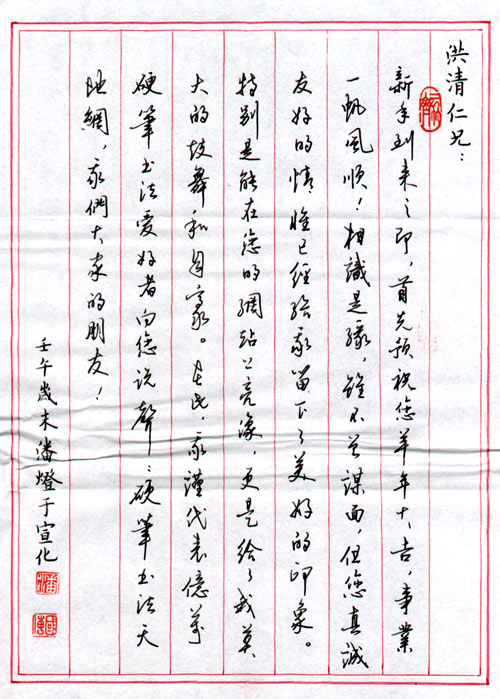 洪清仁兄：
新年到来之即，首先预祝您羊年大吉，事業
一帆風顺！相識是缘，雖不曾谋面，但您真诚
友好的情惟已經给我留下了美好的印象。
特别是能在您的網站上亮像，更是给了我莫
大的鼓舞和自豪。在此，我谨代表億萬
硬筆书法爱好者向您说聲：硬筆书法天
地網，我們大家的朋友！
壬午歲末潘燈于宣化